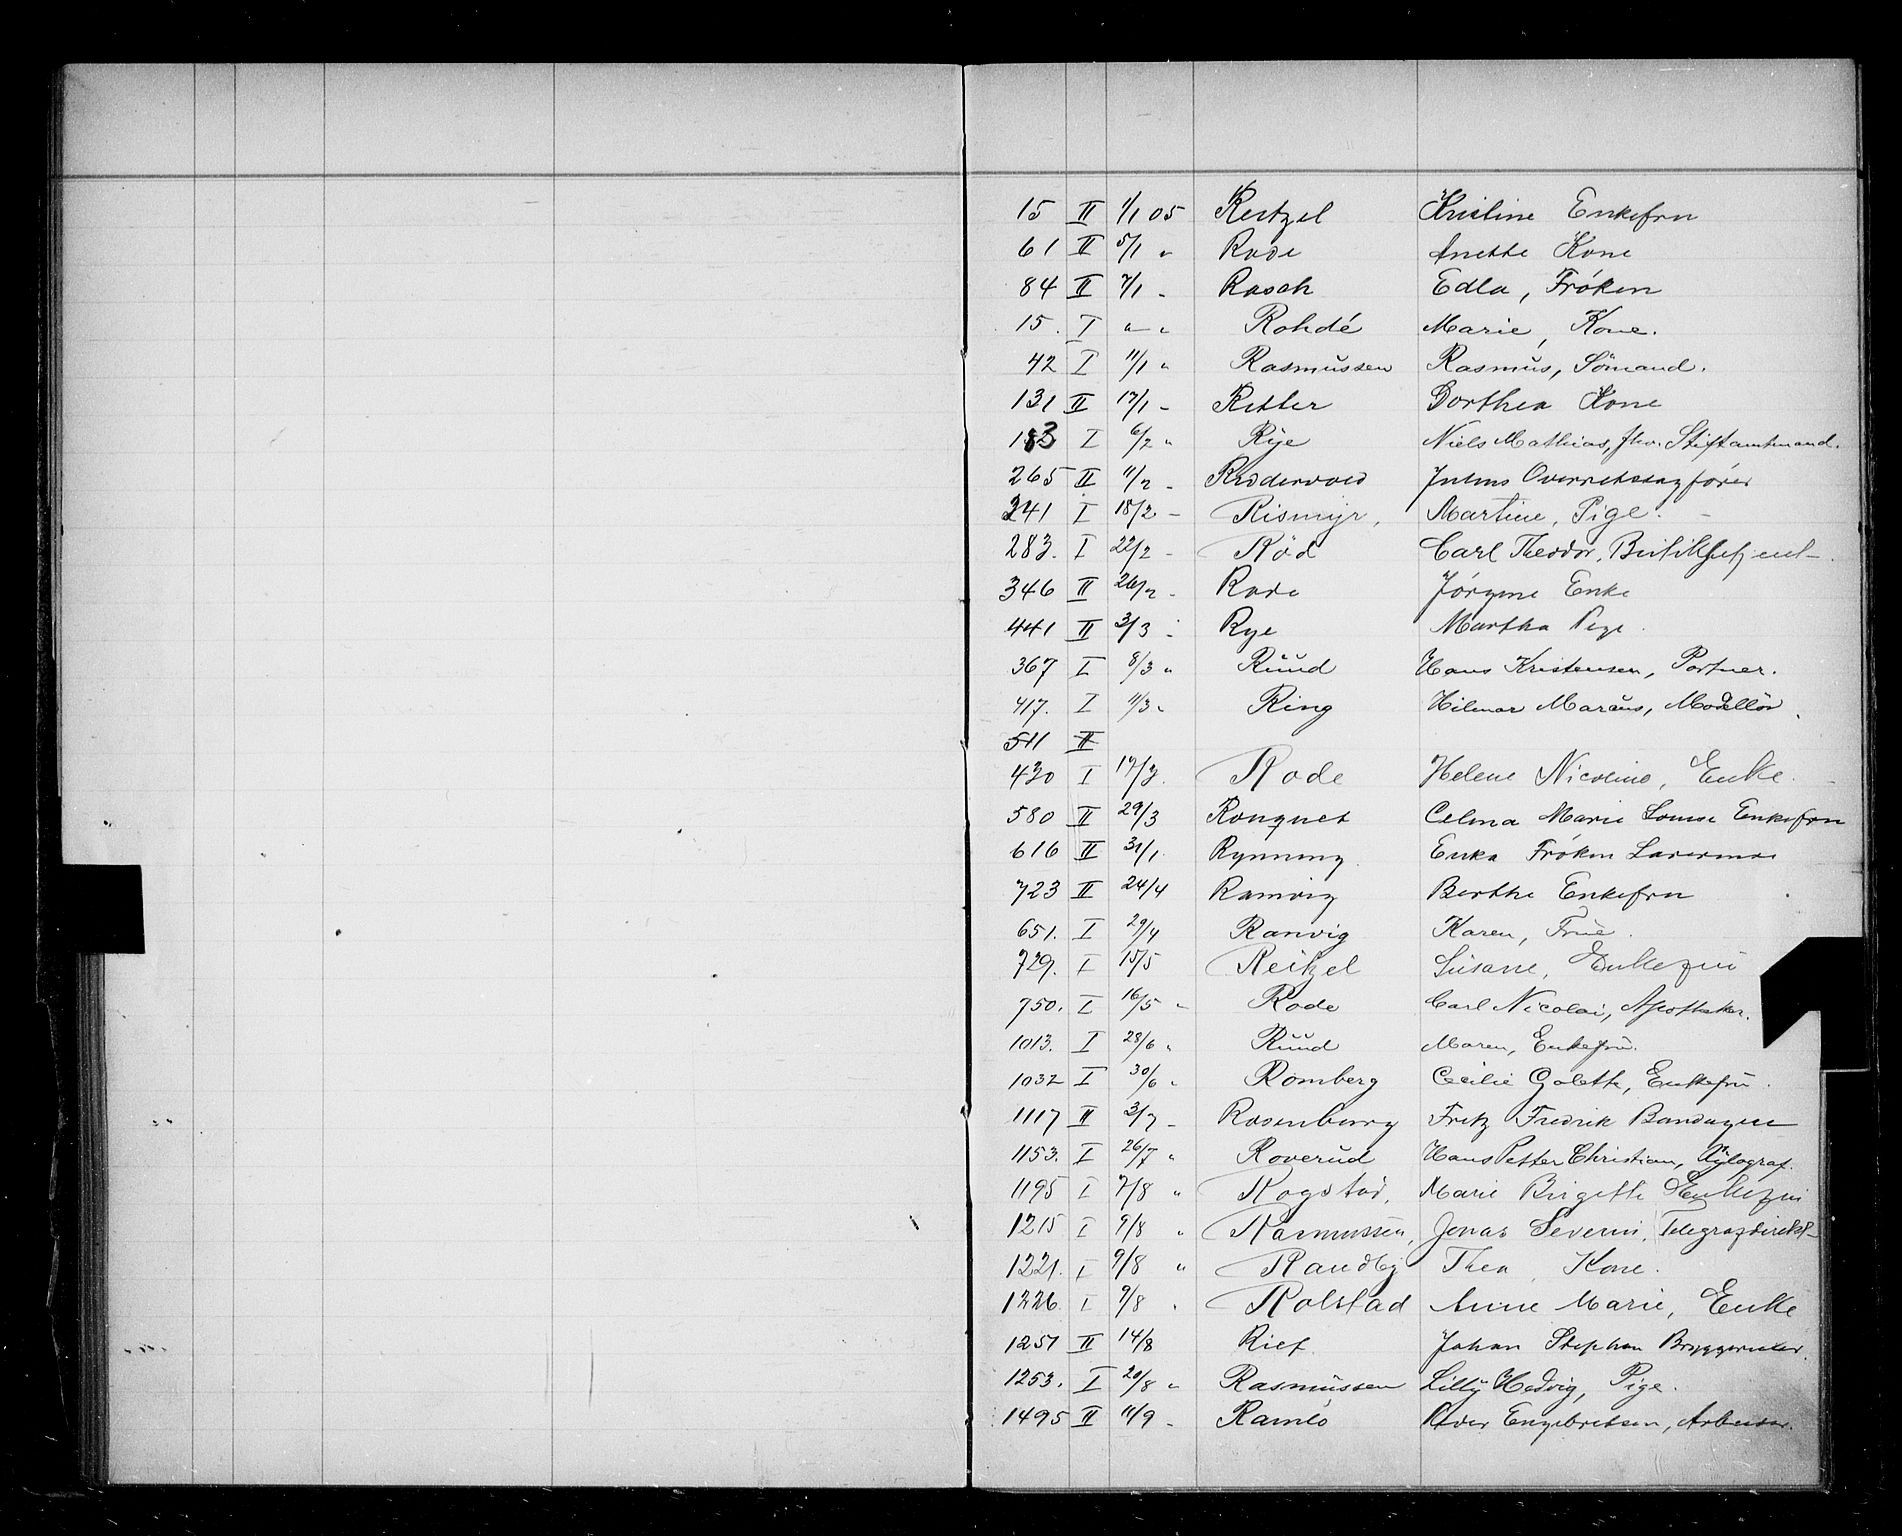 15 II 1/1 05 Reitzel Kristine Enkefru
61 II 5/1 " Rode Anette Kone
84 II 7/1 - Rasch Edla, Frøken
15. I " " Rohdé Marie, Kone.
42 I 11/1 " Rasmussen Rasmus, Sömand.
131 II 17/1 - Ritter Dorthea Kone
183 I 6/2 " Rye Niels Mathias, fhv. Stiftamtmand.
265 II 11/2 - Julius Overretssagfører
241 I 18/2 - Rismyr, Martine, Pige.
283. I 22/2 - Röd Carl Theodor,
346 II 26/2 - Rode Jørgine Enke
441 II 3/3 - Rye Martha Pige.
367 I 8/3 " Ruud Hans Kristensen, Portner.
417. I 11/3 " Ring Hilmar Marcus, Modellör.
511 II
430 I 17/3. Rode Helene Nicoline, Enke.
580 II 29/3 Rouquet Celma Marie Louise Enkefru
616 II 31/1. Rynning. Erika Frøken Lærerinde
723 II 24/4 Ramvig Berthe Enkefru
651. I 29/4 Ranvig Karen, Frue.
729. I 15/5 Reitzel Susane, Enkefru
750. I 16/5 " Rode Carl Nicolai, Apotheker.
1013. I 28/6 " Ruud Maren, Enkefru.
1032 I 30/6 " Romberg Cecilie Golette, Enkefru.
1117 II 3/7 - Rosenburg Fritz Fredrik Bandagist
1153. I 26/7 " Roverud Hans Petter Christian, Xylograf.
1195 I 7/8 " Rogstad, Marie Birgette Enkefru
1215 I 9/8 " Rasmussen, Jonas Severin, Telegrafdirekt-
1221. I 9/8 " Randby Thea, Kone.
1226. I 9/8 " Rolstad Anne Marie, Enke
1251 II 14/8 Rief. Johan Stephan Bryggerieier.
1253. I 20/8 " Rasmussen Lilly Hedvig, Pige.
1495 II 11/9 - Ramlö Iver Engebretsen, Arbeider.